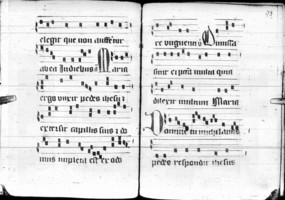 elegit que non auferetur
ab ea In diebus Maria
ergo unxit pedes ihesu
extersit capillis suis do
mus impleta est ex odo
re unguenti Dimissa
sunt ei multa quia
dilexit multum Maria
Domine michi lavas
pedes respondit ihesus